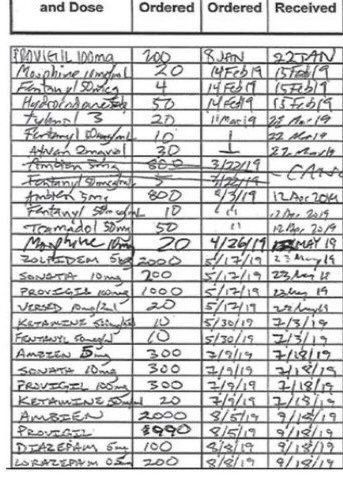 and Dose Ordered Ordered Received
PROVIGIL 100mg 200 8 JAN 22 JAN
Morphine 10mg/ml 20 14 Feb 19 15 Feb 19
Fentanyl 50mcg 4 14 Feb 19 15 Feb 19
Hydrocodone 50 14 Feb 19 15 Feb 19
Tylenol 3 20 11 Mar 19 22 Mar 19
Fentanyl 50mcg/mL 10 22 Mar 19
Ativan 2mg 30 22 Mar 19
Ambien 5mg 600 3/22/19
Fentanyl 50mcg/mL 5 3/22/19
Ambien 5mg 800 4/3/19 12 Apr 2019
Fentanyl 50mcg/mL 10 " 12 Apr 2019
Tramadol 50mg 50 " 12 Apr 2019
Morphine 10mg 20 4/26/19 MAY 19
ZOLPIDEM 5mg 2000 5/17/19 23 May 19
SONATA 10mg 200 5/17/19 23 May 19
PROVIGIL 100mg 1000 5/17/19 23 May 19
VERSED 20 5/17/19
KETAMINE 10 5/30/19 7/3/19
FENTANYL 10 5/30/19 7/3/19
AMBIEN 5mg 300 7/9/19 7/18/19
SONATA 10mg 300 7/9/19 7/18/19
PROVIGIL 100mg 300 7/9/19 7/18/19
KETAMINE 20 7/9/19 7/18/19
AMBIEN 2000 8/5/19 9/18/19
PROVIGIL 990 8/5/19 9/18/19
DIAZEPAM 5mg 100 8/8/19 9/18/19
LORAZEPAM 200 8/8/19 9/18/19